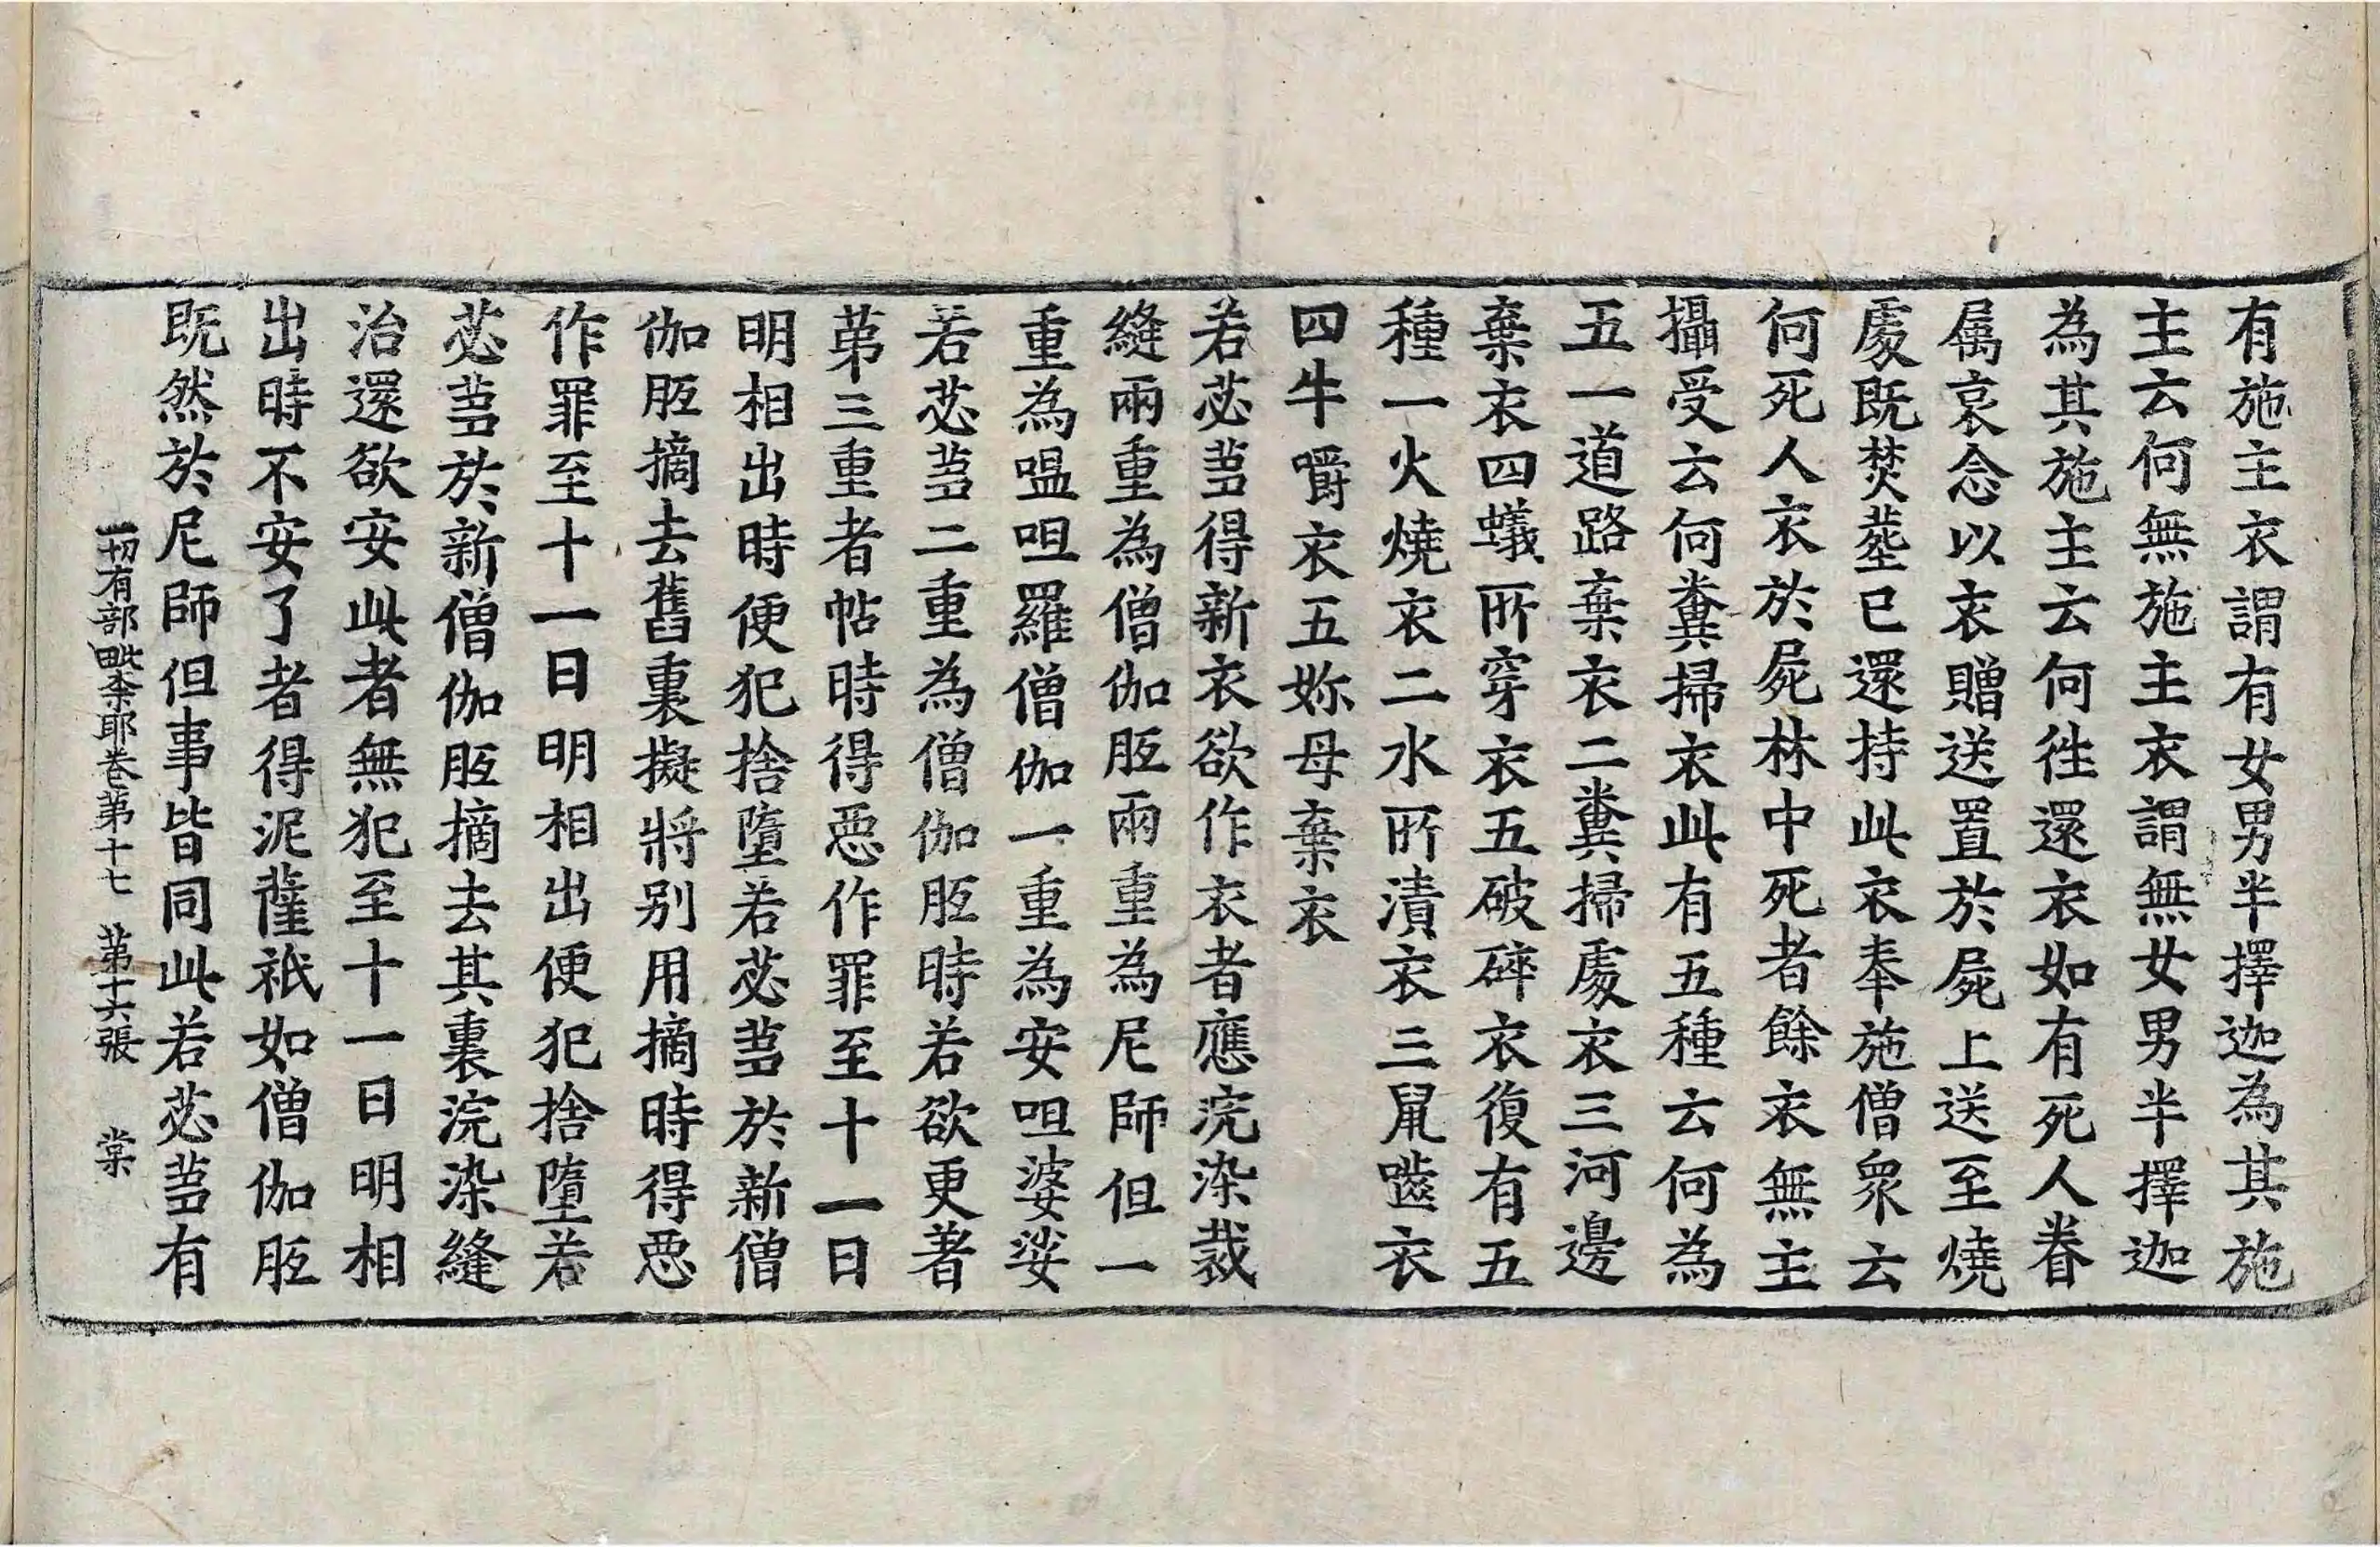 有施主衣謂有女男半擇迦為其施
主云何無施主衣謂無女男半擇迦
為其施主云何徃還衣如有死人眷
属哀念以衣贈送置於屍上送至燒
處既焚葬已還持此衣奉施僧衆云
何死人衣於屍林中死者餘衣無主
攝受云何糞掃衣此有五種云何為
五一道路棄衣二糞掃處衣三河邊
棄衣四蟻所穿衣五破碎衣復有五
種一火燒衣二水所漬衣三鼠齧衣
四牛嚼衣五妳母棄衣
若苾蒭得新衣欲作衣者應浣染裁
縫兩重為僧伽胝兩重為尼師但一
重為嗢呾羅僧伽一重為安呾婆娑
若苾蒭二重為僧伽胝時若欲更著
苐三重者帖時得惡作罪至十一日
明相出時便犯捨墮若苾蒭於新僧
伽胝摘去舊裏擬將别用摘時得惡
作罪至十一日明相出便犯捨墮若
苾蒭於新僧伽胝摘去其裏浣染縫
治還欲安此者無犯至十一日明相
出時不安了者得泥薩祇如僧伽胝
既然於尼師但事皆同此若苾蒭有
一切有部毗柰耶卷苐十七 苐十六張 棠